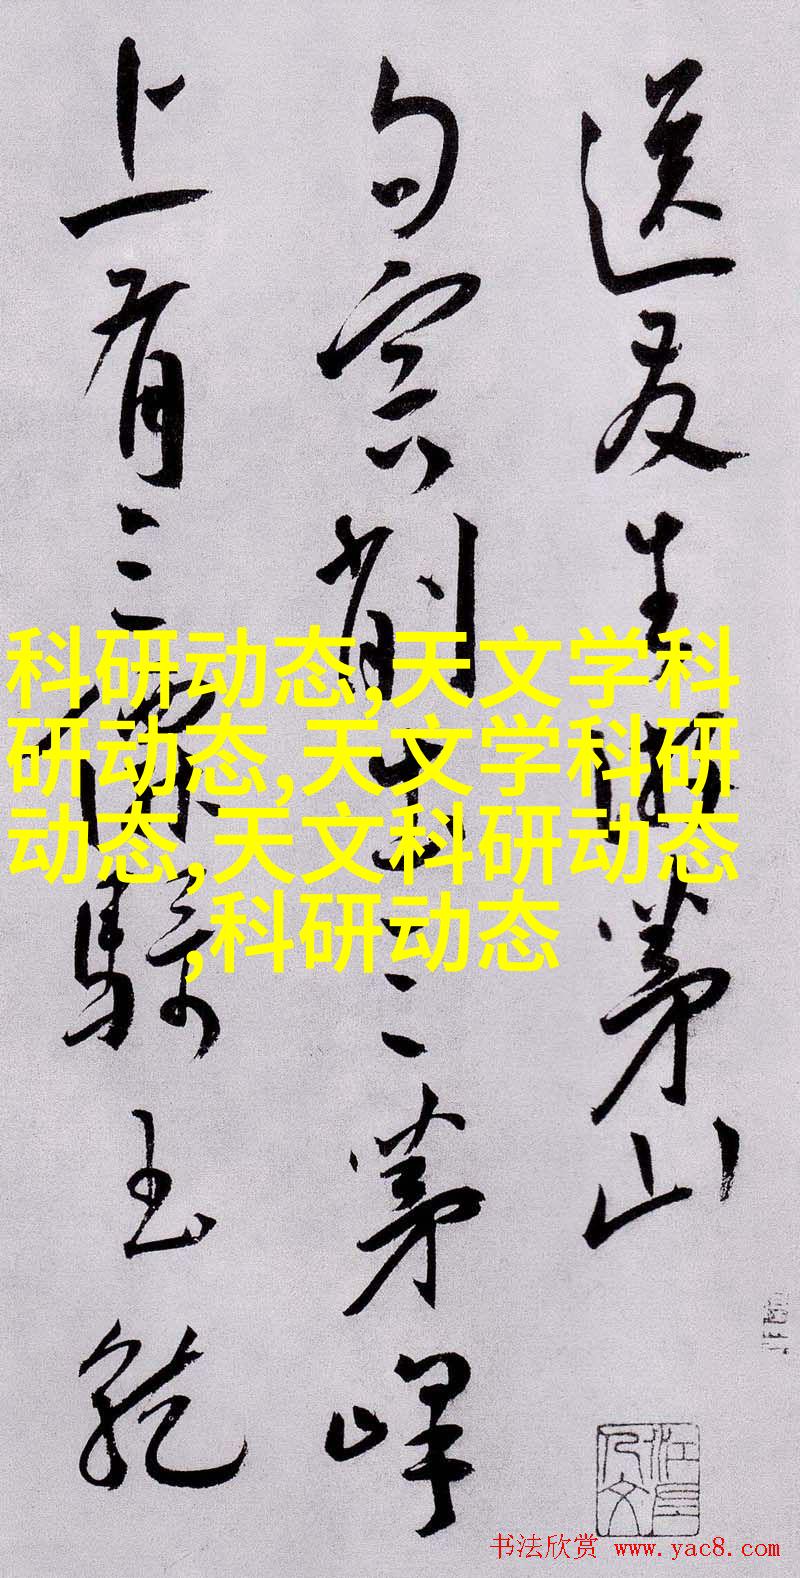 送友生游茅山
句容削出三茅峰
上有三騎玉龍
科研动态,天文学科
研动态,天文学科研
动态,天文科研动态
,科研动态
书法欣赏 www.yac8.com